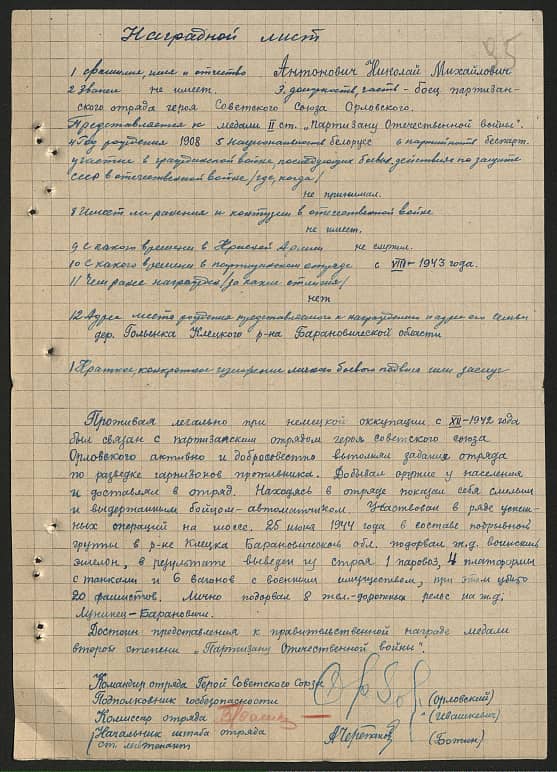 Наградной лист
95
1 фамилия, имя и отчество Антонович Николай Михайлович
2 Звание не имеет. 3 должность, часть - боец партизан-
ского отряда героя Советского Союза Орловского.
Представляется к медали II ст. „Партизану Отечественной войны".
4 Год рождения 1908 5 Национальность белорусс 6 партийность беспарт.
участие в гражданской войне, последующих боевых действиях по защите
СССР в отечественной войне /где, когда/
не принимал.
8 Имеет ли ранения и контузии в отечественной войне
не имеет.
9 С какого времени в Красной Армии не служил.
10 С какого времени в партизанском отряде с VIII - 1943 года.
11 Чем ранее награжден /за какие отличия/
нет
12 Адрес места рождения представляемого к награждению и адрес его семьи
дер. Голынка Клецкого р-на Барановической области
1 Краткое, конкретное изложение личного боевого подвига или заслуг
Проживая легально при немецкой оккупации с XII-1942 года
был связан с партизанским отрядом героя советского союза
Орловского активно и добросовестно выполнял задания отряда
по разведке гарнизонов противника. Добывал оружие у населения
и доставлял в отряд. Находясь в отряде показал себя смелым
и выдержанным бойцом-автоматчиком. Участвовал в ряде успеш-
ных операций на шоссе. 25 июня 1944 года в составе подрывной
группы в р-не Клецка Барановической обл. подорвал ж.д. воинский
эшелон, в результате выведен из строя 1 паровоз, 4 платформы
с танками и 6 вагонов с военным имуществом, при этом убито
20 фашистов. Лично подорвал 8 жел-дорожных рельс на ж.д.
Лунинец-Барановичи.
Достоин представления к правительственной награде медали
второй степени „Партизану Отечественной войны".
Командир отряда Герой Советского Союза
Подполковник госбезопасности (Орловский)
Комиссар отряда (Ивашкевич)
Начальник штаба отряда
ст. лейтенант (Ботин)